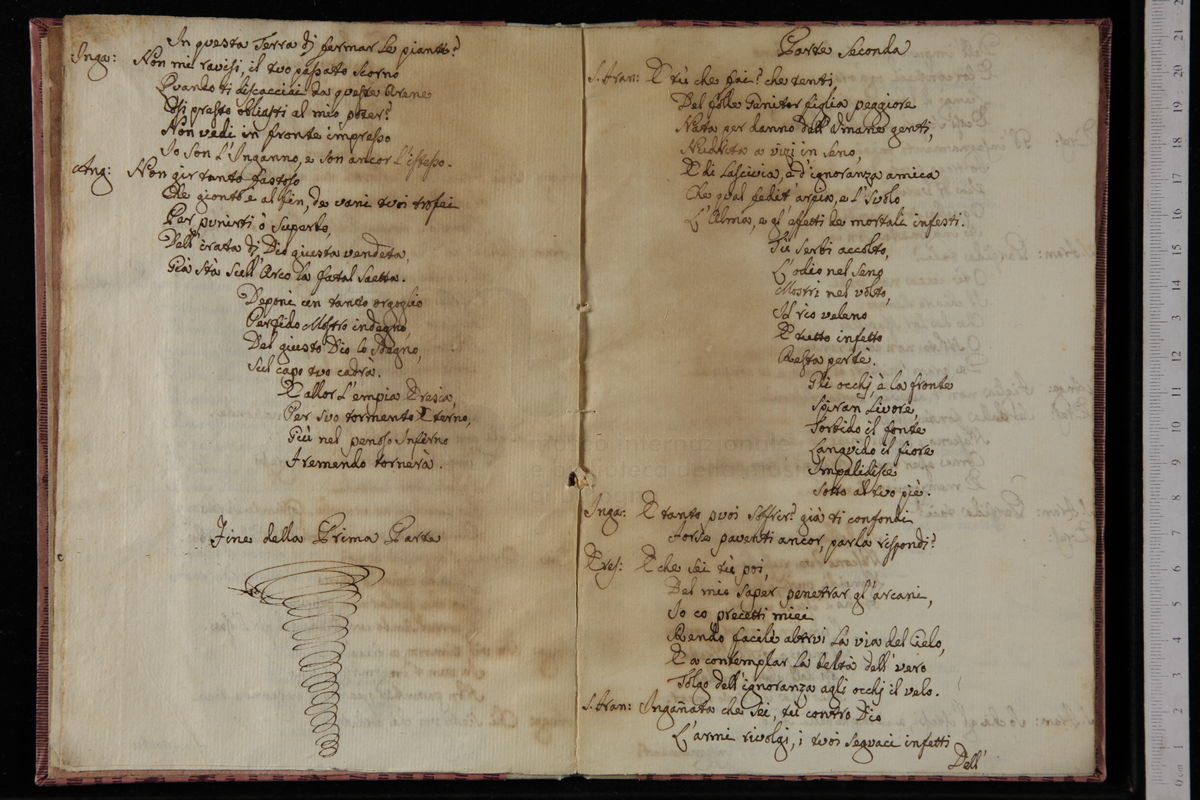 In questa Terra di fermar le piante?
Inga: Non mi ravisi, il tuo passato scorno
Quando ti discacciai da queste Arene
Così presto obliasti al mio poter?
Non vedi in fronte impresso
Io son L'Inganno, e son ancor L'istesso.
Ang: Non gir tanto fastoso
Che gionto è al fin, de vani tuoi trofei
Per punirti ò superbo,
Dell'irata di Dio giusta vendeta,
Già stà sull'Arco la fatal saetta.
Deponi un tanto orgoglio
Perfido Mostro indegno,
Del giusto Dio lo sdegno,
Sul capo tuo cadrà.
E allor L'empia Eresia,
Per suo tormento Eterno,
Giù nel penoso Inferno
Tremendo tornerà.
Fine della Prima Parte
Parte Seconda
S. Fran: E tù che fai? che tenti,
Del folle Genitor figlia peggiore
Nata per danno dell'Umane genti,
Nudrita a vizi in seno,
E di Lascivia, e d'ignoranza amica
Che qual fedit'aria, e L'suolo
L'Alma, e gl'afetti de mortali infesti.
Tù serbi accolto,
L'odio nel seno
Mostri nel volto,
Il rio veleno
E tutto infetto
Resta per tè.
Gli occhj è la fronte
Spiran Livore,
Torbido il fonte
Languido il fiore
Impalidisce
Sotto al tuo piè.
Inga: E tanto puoi soffrir? già ti confondi
Forse paventi ancor, parla rispondi?
Eres: E che sei tù poi,
Del mio saper penetrar gl'arcani,
Io co precetti miei
Rendo facile altrui La via del Cielo,
E a contemplar La beltà dell'vero
Tolgo dell'ignoranza agli occhj il velo.
S. Fran: Ingañata che sei, tù contro Dio
L'armi rivolgi, i tuoi seguaci infetti
Dell'